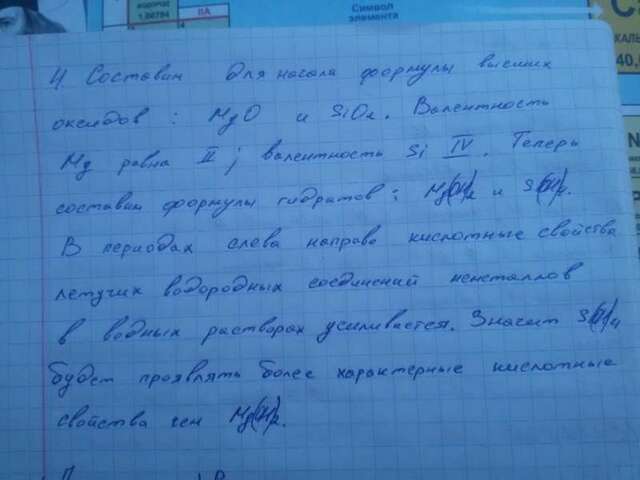 водород
1,00794
IIA
Символ
элемента
КАЛЬ
40,0
4) Составим для начала формулы высших
оксидов: MgO и SiO2. Валентность
Mg равна II; валентность Si IV. Теперь
составим формулы гидратов: Mg(OH)2 и
В периодах слева направо кислотные свойства
летучих водородных соединений неметаллов
в водных растворах усиливается. Значит
будет проявлять более характерные кислотные
свойства чем Mg(OH)2.